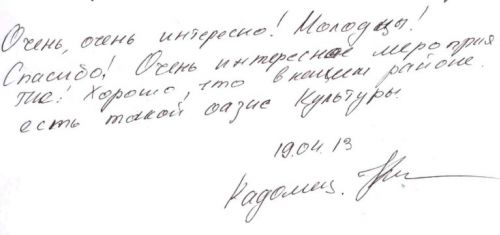 Очень, очень интересно! Молодцы!
Спасибо! Очень интересное мероприя
тие! Хорошо, что в нашем районе.
есть такой оазис Культуры.
19.04.13
Кадомец.